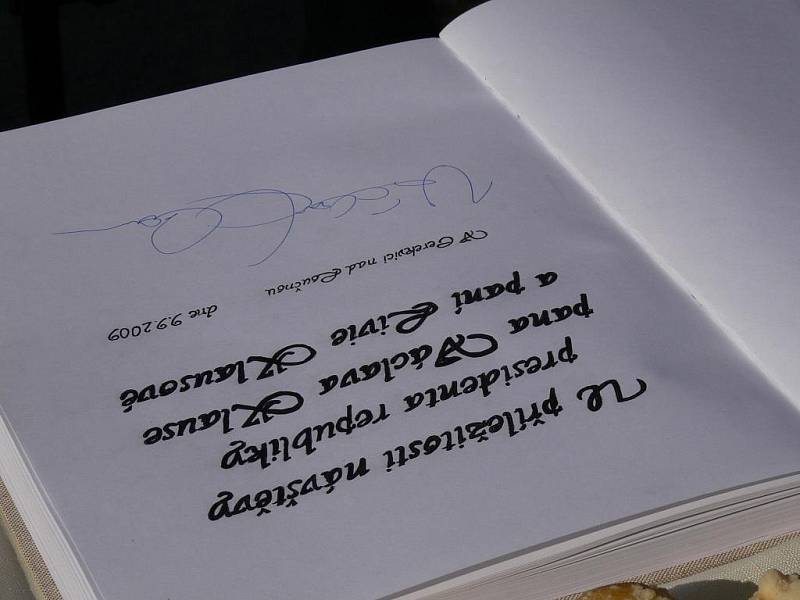 U příležitosti návštěvy
presidenta republiky
pana Václava Klause
a paní Livie Klausové
V Cerekvici nad Loučnou dne 9.9.2009
Václav Klaus